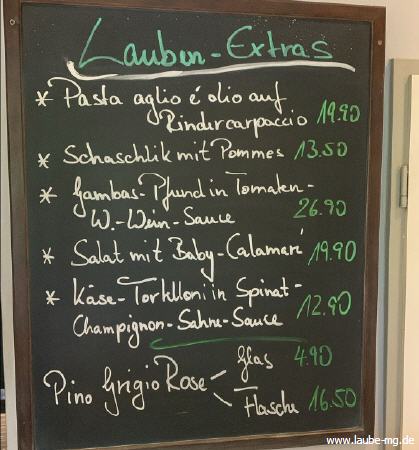 Lauben-Extras
* Pasta aglio é olio auf
Rindercarpaccio 19.90
* Schaschlik mit Pommes 13.50
* Gambas-Pfund in Tomaten-
W.-Wein-Sauce 26.90
* Salat mit Baby-Calamari 19.90
* Käse-Tortelloni in Spinat-
Champignon-Sahne-Sauce 12.90
Pino Grigio Rose
Glas 4.90
Flasche 16.50
www.laube-mg.de